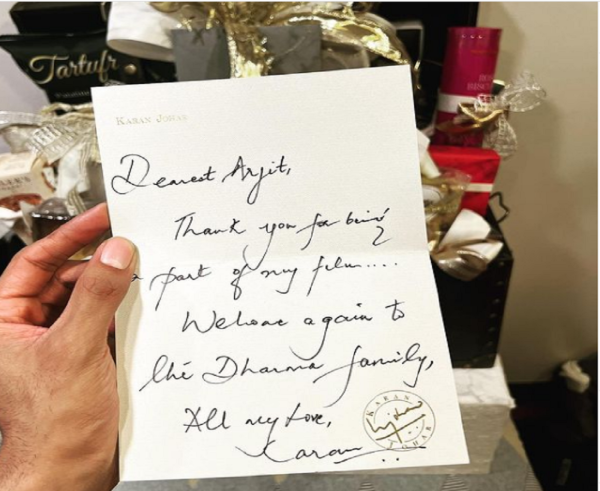 Tartufi
KARAN JOHAR
Dearest Arjit,
Thank you for being
a part of my film....
Welcome again to
the Dharma family,
All my love,
Karan
KARAN
JOHAR